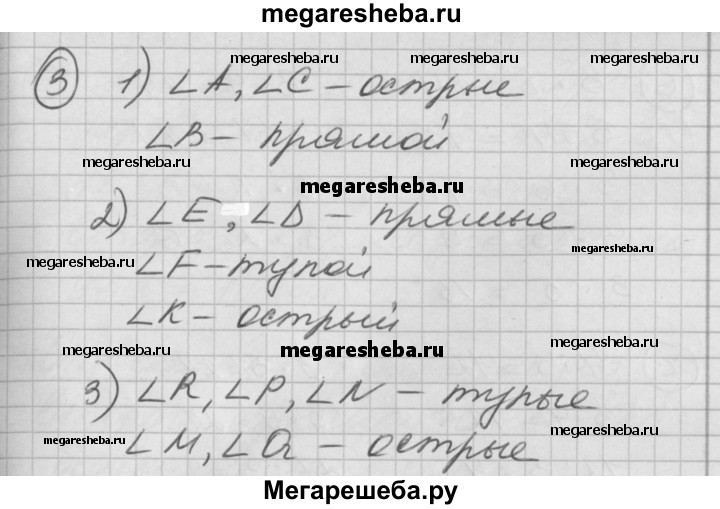 megaresheba.ru
megaresheba.ru megaresheba.ru
③ 1) ∠A, ∠C – острые
∠B – прямой
megaresheba.ru megaresheba.ru
megaresheba.ru
2) ∠E, ∠D – прямые
megaresheba.ru
∠F – тупой
megaresheba.ru
∠K – острый
megaresheba.ru megaresheba.ru megaresheba.ru
3) ∠R, ∠P, ∠N – тупые
∠M, ∠Q – острые
megaresheba.ru megaresheba.ru
Мегарешеба.ру